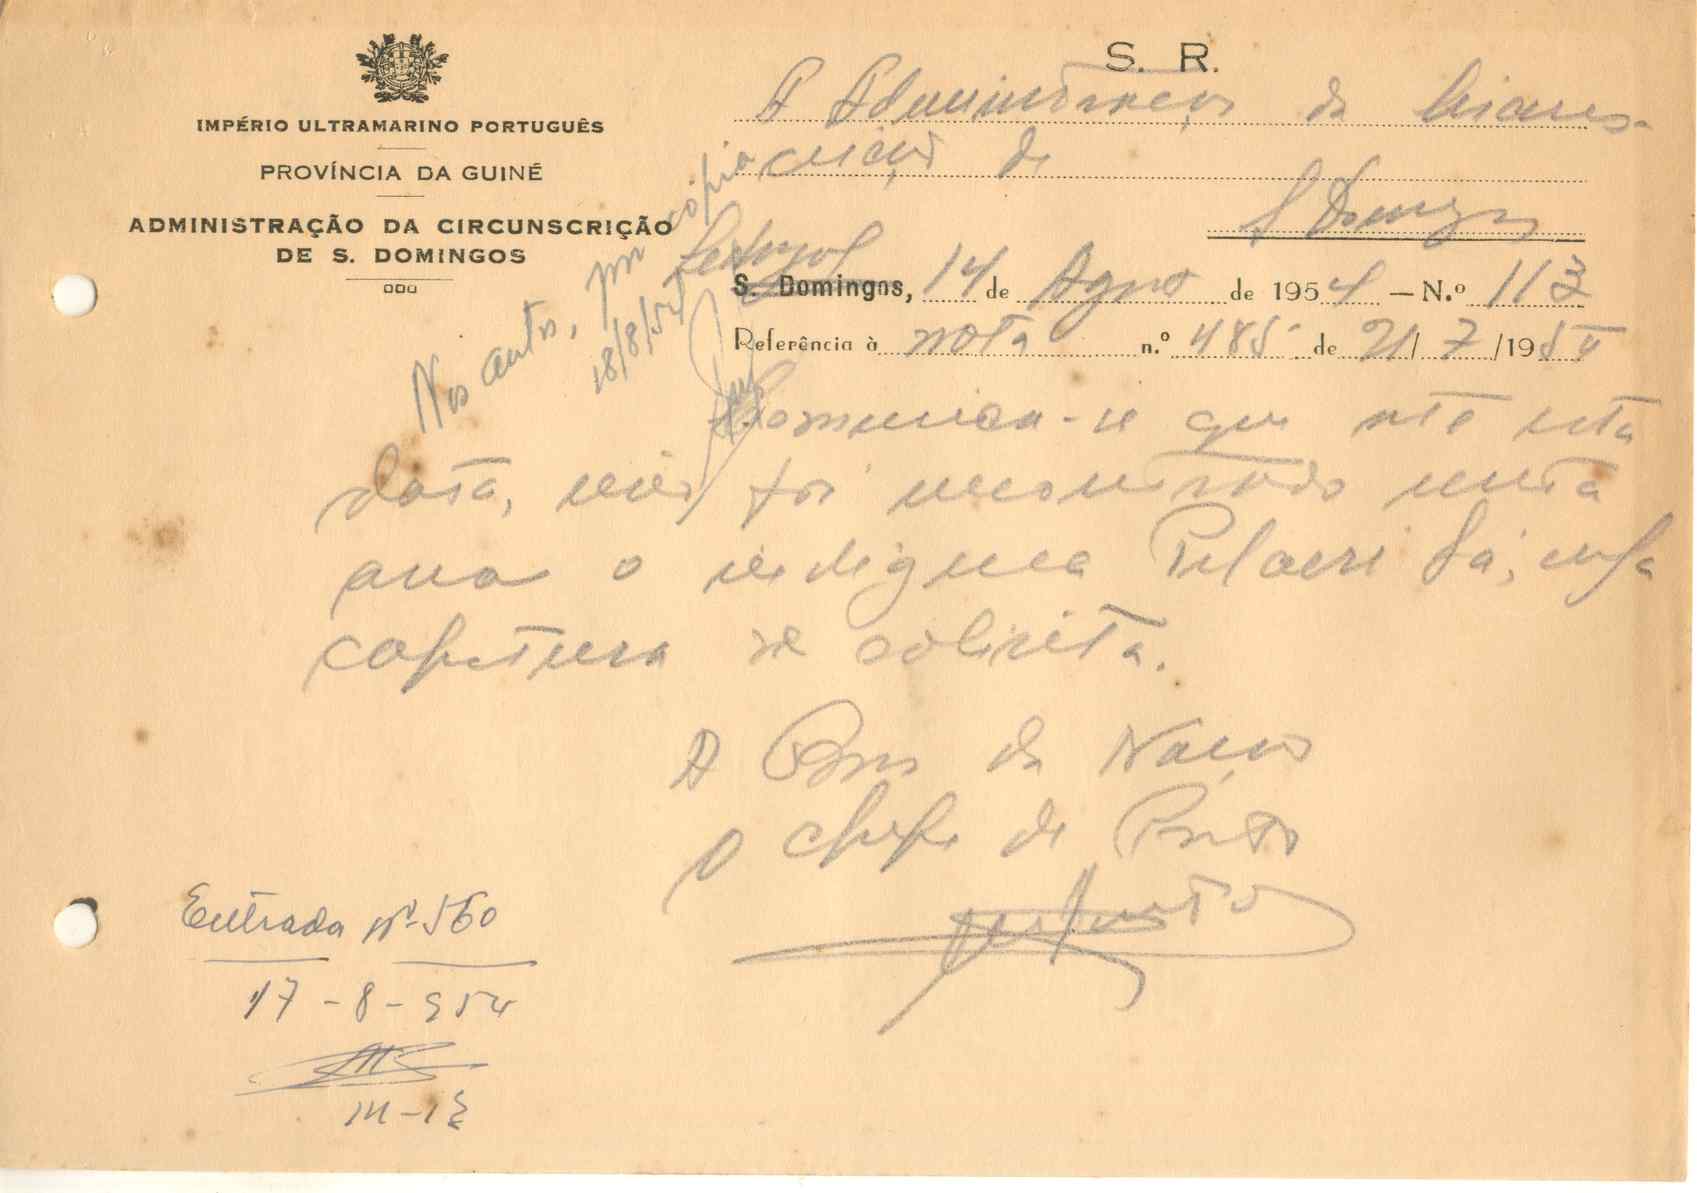 IMPÉRIO ULTRAMARINO PORTUGUÊS
PROVÍNCIA DA GUINÉ
ADMINISTRAÇÃO DA CIRCUNSCRIÇÃO
DE S. DOMINGOS
S. R.
A Administração da Circuns-
crição de
S Domingos
S. Domingos, 14 de Agosto de 1954 — N.º 113
Referência à nota n.º 485 de 21/7/1954
Nos autos, por cópia
18/8/54
Comunica-se que até esta
data, não foi encontrado nesta
area o indigena Sá, cuja
captura se solicita.
A Bem da Nação
O Chefe de Posto
Entrada nº 560
17-8-954